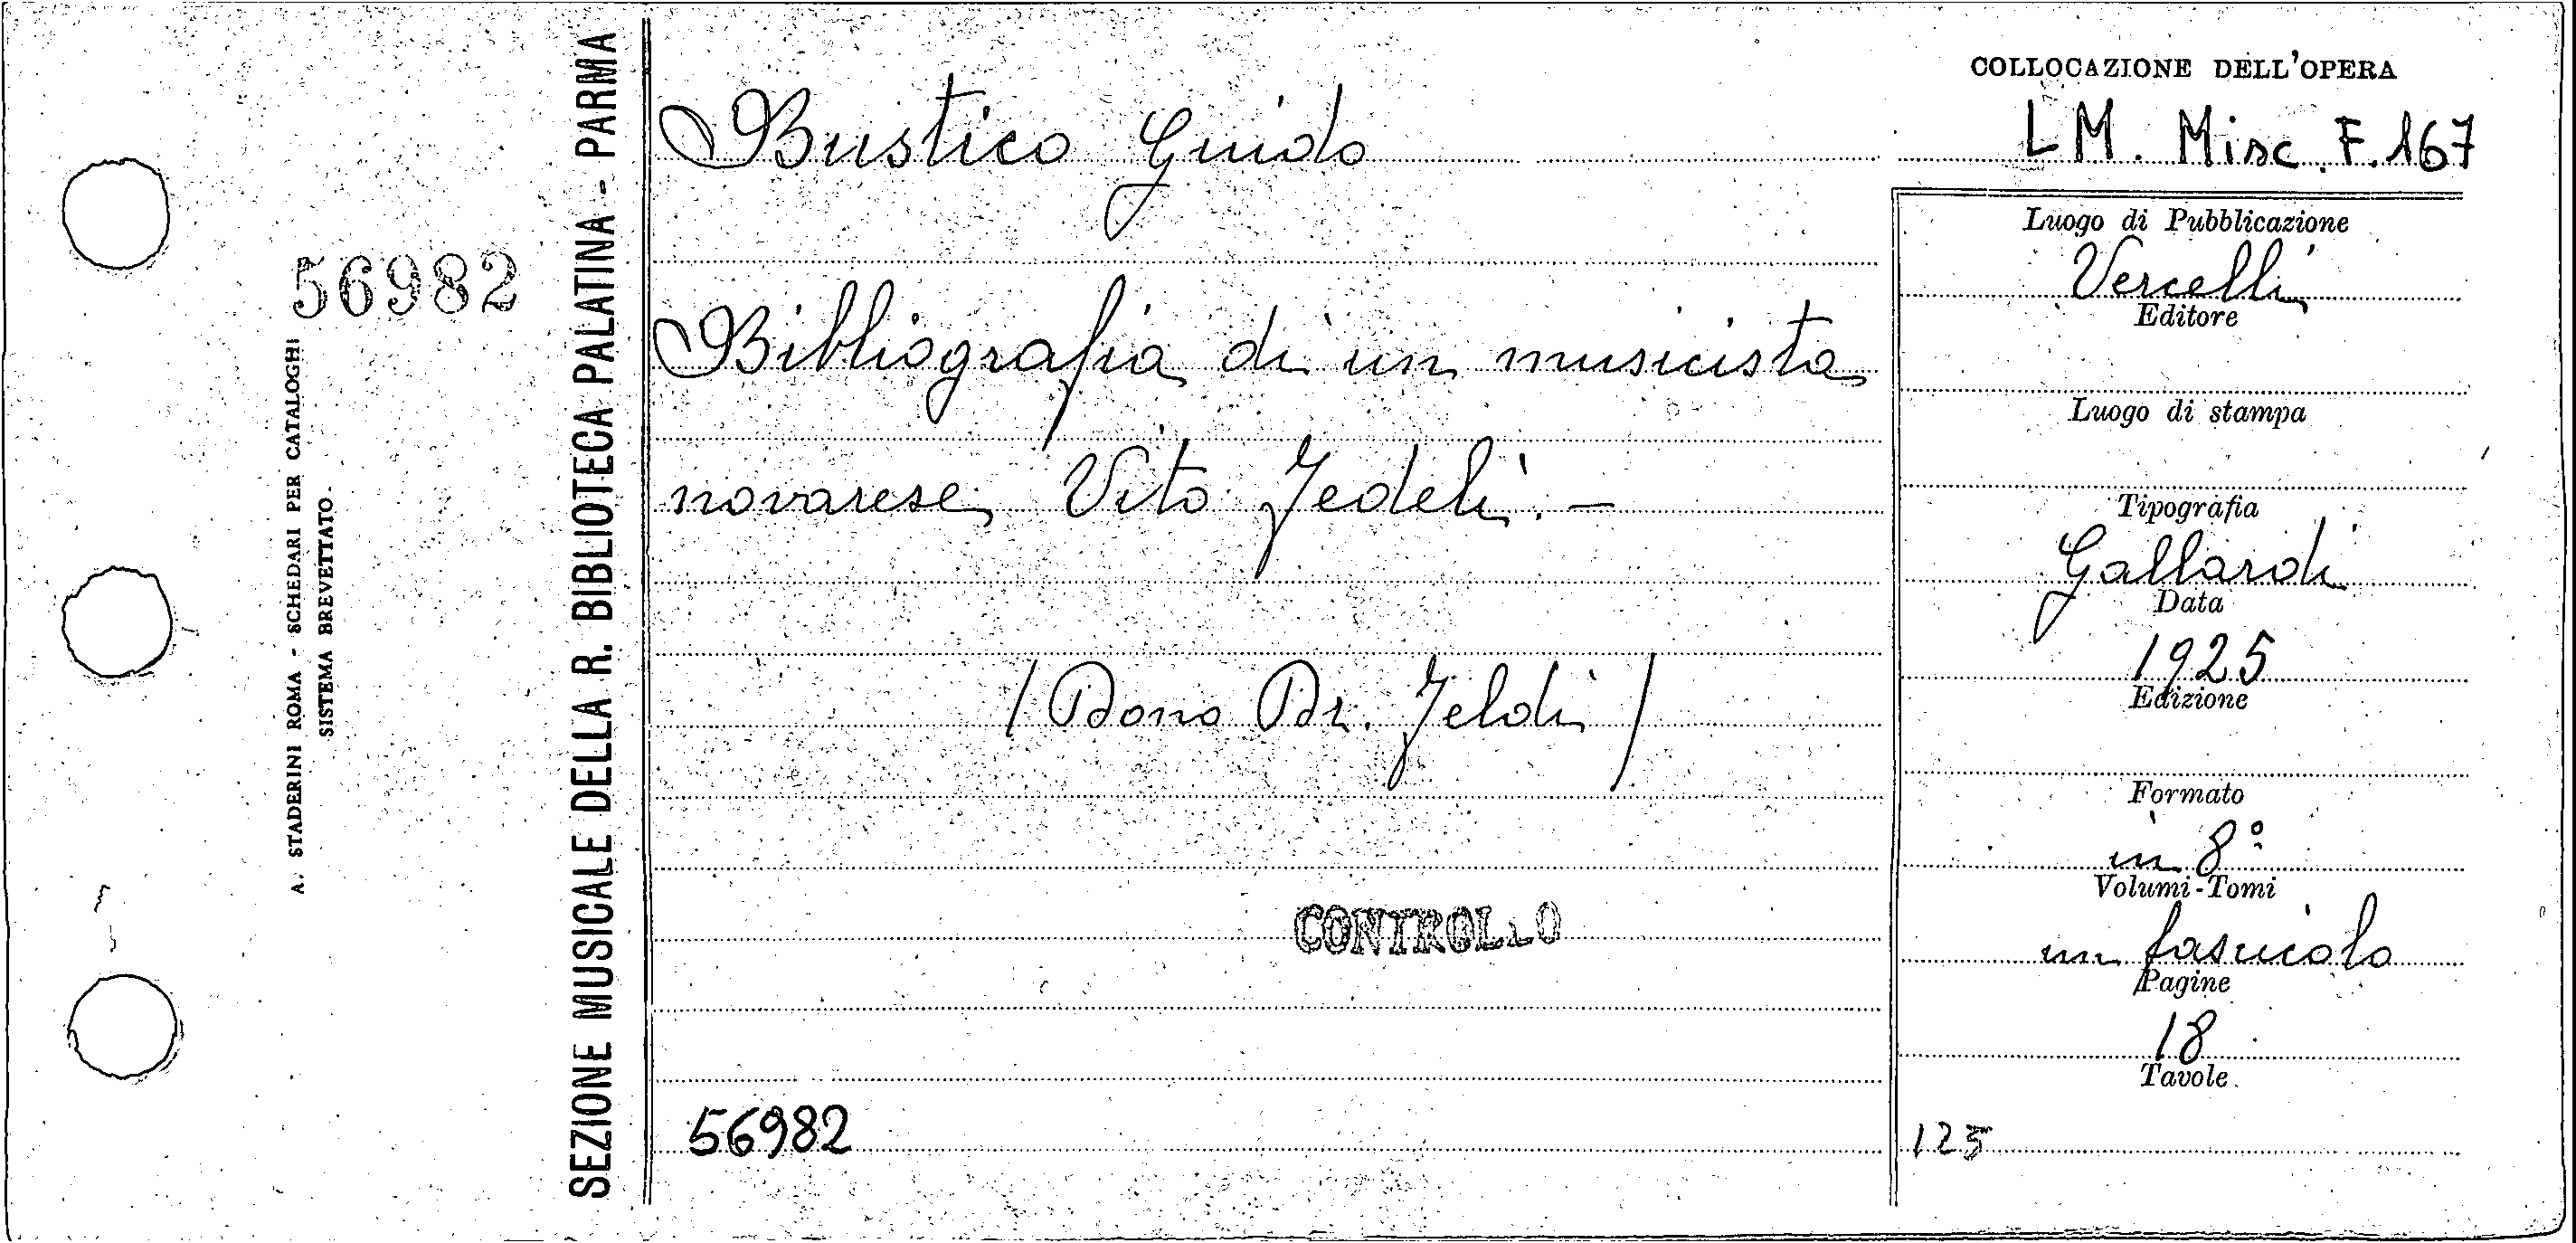 56982
A. STADERINI ROMA - SCHEDARI PER CATALOGHI
SISTEMA BREVETTATO.
SEZIONE MUSICALE DELLA R. BIBLIOTECA PALATINA - PARMA
Bustico Guido
Bibliografia di un musicista
novarese Vito Fedeli. —
(Dono Dr. Feldi)
CONTROLLO
56982
COLLOCAZIONE DELL'OPERA
LM. Misc. F. 167
Luogo di Pubblicazione
Vercelli
Editore
Luogo di stampa
Tipografia
Gallardi
Data
1925
Edizione
Formato
in 8°
Volumi-Tomi
un fascicolo
Pagine
18
Tavole
125